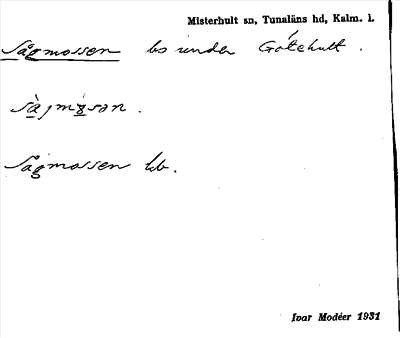 Misterhult sn, Tunaläns hd, Kalm. l.
Sågmossen bs under Götehult.
Sågmossen hb.
Ivar Modéer 1931